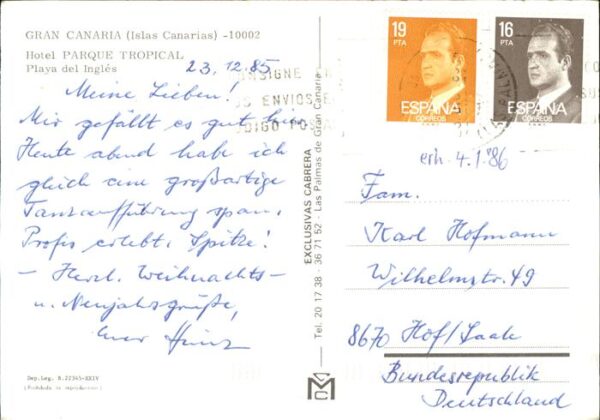 GRAN CANARIA (Islas Canarias) -10002
Hotel PARQUE TROPICAL
Playa del Inglés
23.12.85
Meine Lieben!
Mir gefällt es gut hier.
Heute abend habe ich
gleich eine großartige
Tanzaufführung span.
Profis erlebt. Spitze!
- Herzl. Weihnachts-
u. Neujahrsgrüße,
Euer Heinz
Dep. Leg. B. 22345-XXIV
EXCLUSIVAS CABRERA
Tel. 20 17 38 - 36 71 52 - Las Palmas de Gran Canaria
19
PTA
ESPAÑA
CORREOS
16
PTA
ESPAÑA
CORREOS
CONSIGNE
ENVIOS
erh. 4.1.86
Fam.
Karl Hofmann
Wilhelmstr. 49
8670 Hof/Saale
Bundesrepublik
Deutschland